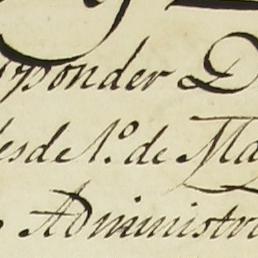 sponder D
desde 1.º de Ma
Administra